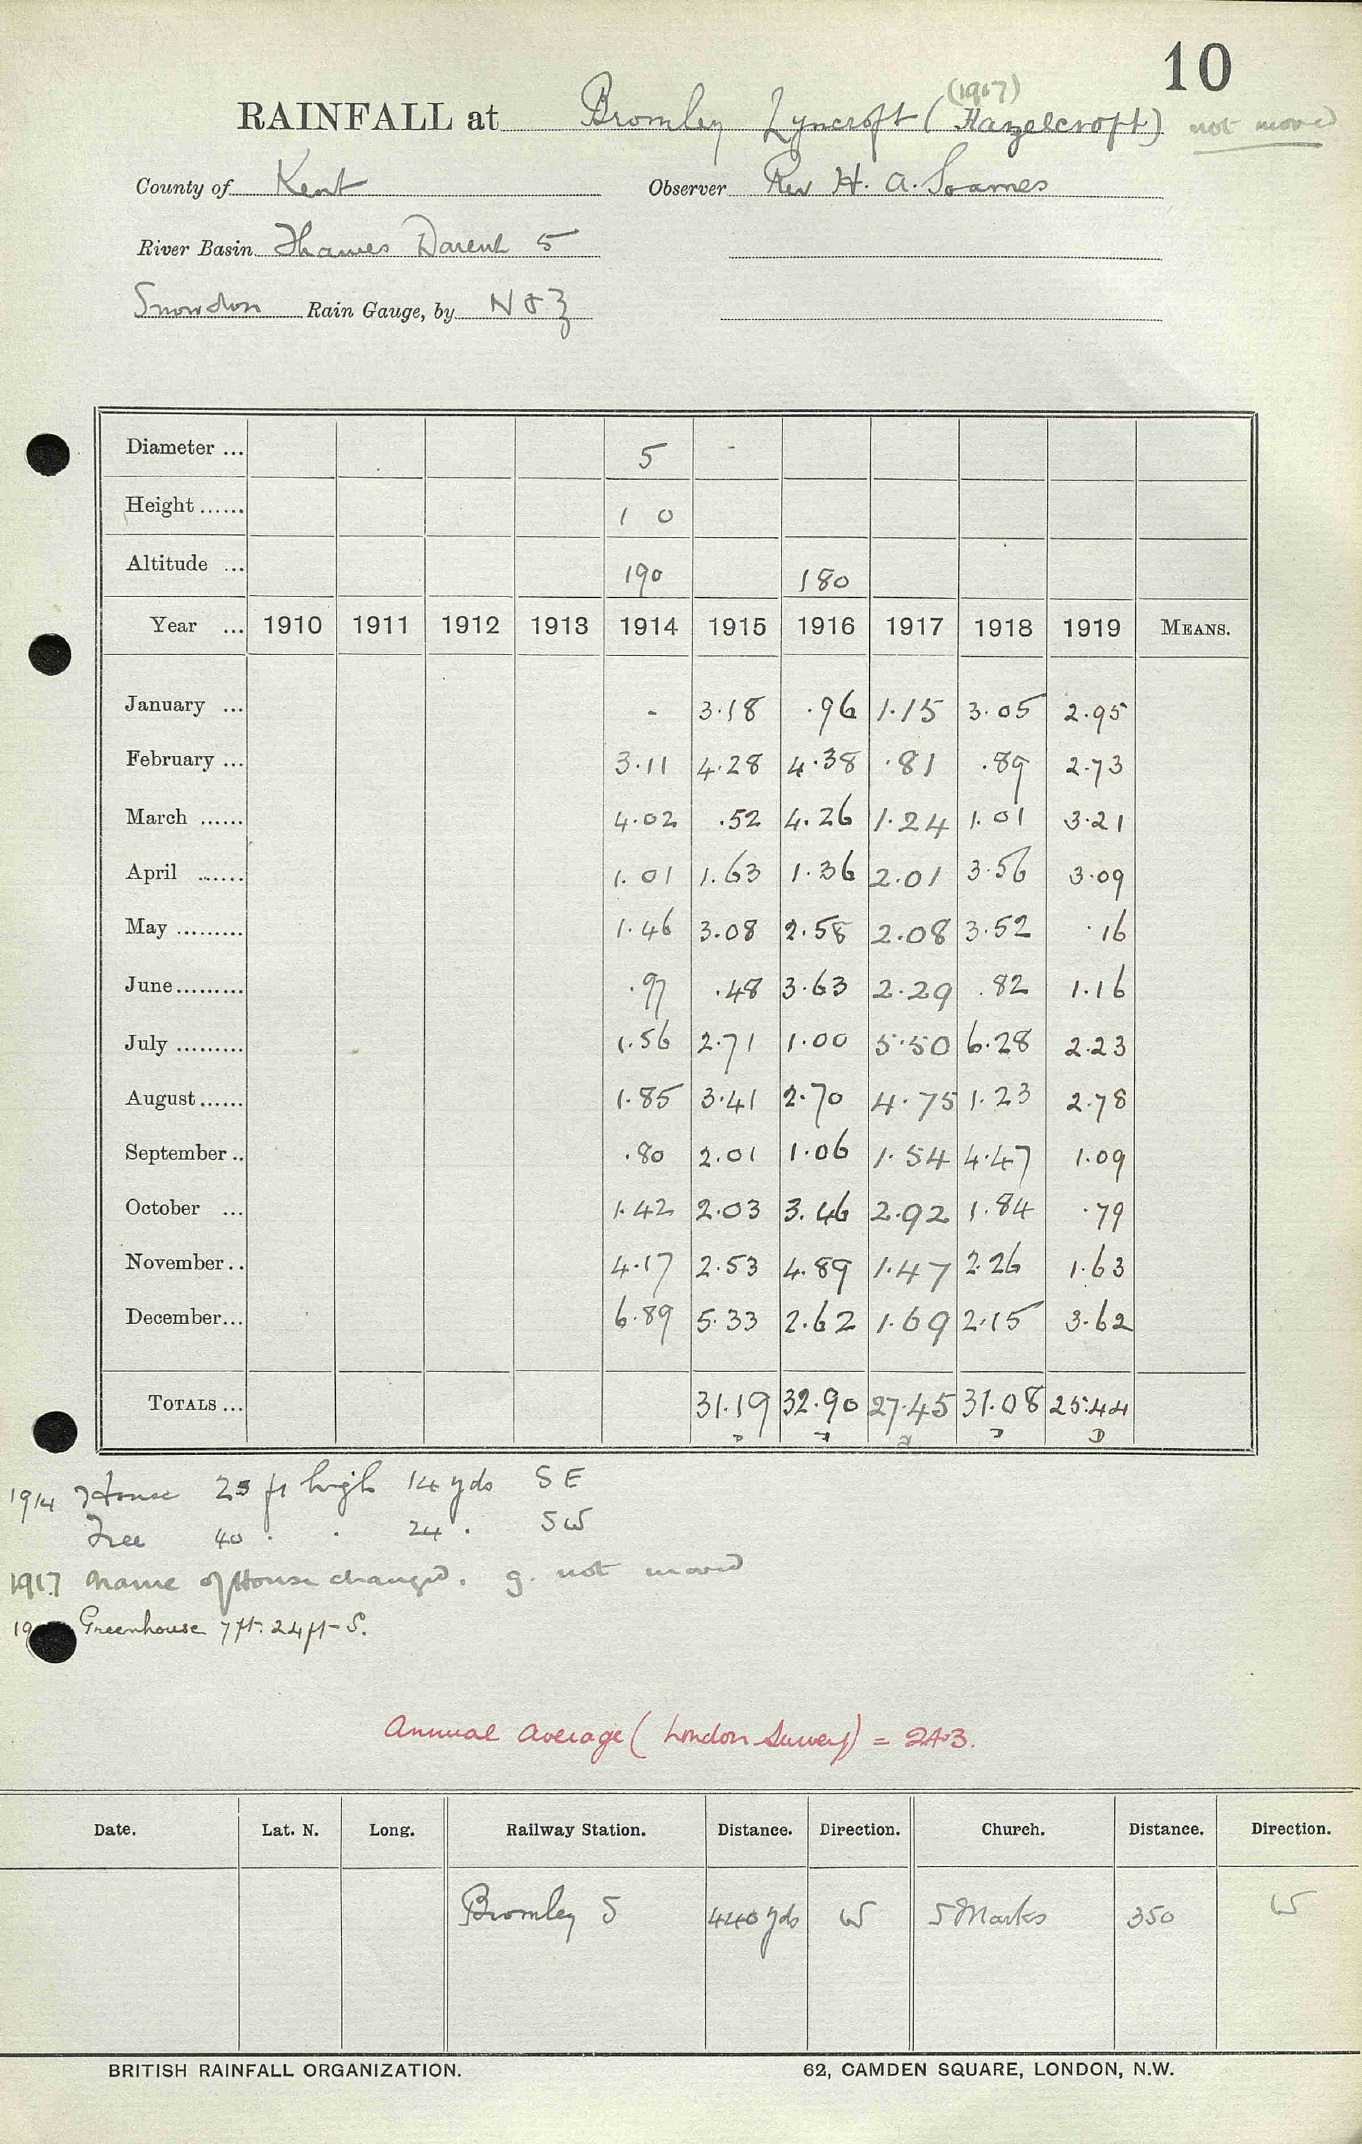 10
(1917)
RAINFALL at Bromley Lyncroft (Hazelcroft) not moved
County of Kent Observer Rev H. A. Soames
River Basin Thames Darent 5
Snowdon Rain Gauge, by N & Z
Diameter ... 5
Height ...... 1 0
Altitude ... 190 180
Year ... 1910 1911 1912 1913 1914 1915 1916 1917 1918 1919 MEANS.
January ... - 3.18 .96 1.15 3.05 2.95
February ... 3.11 4.28 4.38 .81 .89 2.73
March ...... 4.02 .52 4.26 1.24 1.01 3.21
April ...... 1.01 1.63 1.36 2.01 3.56 3.09
May ......... 1.46 3.08 2.58 2.08 3.52 .16
June......... .97 .48 3.63 2.29 .82 1.16
July ......... 1.56 2.71 1.00 5.50 6.28 2.23
August...... 1.85 3.41 2.70 4.75 1.23 2.78
September .. .80 2.01 1.06 1.54 4.47 1.09
October ... 1.42 2.03 3.46 2.92 1.84 .79
November .. 4.17 2.53 4.89 1.47 2.26 1.63
December... 6.89 5.33 2.62 1.69 2.15 3.62
TOTALS ... 31.19 32.90 27.45 31.08 25.44
1914 House 25 ft high 14 yds SE
Tree 40 . . 24 . SW
1917 Name of House changed. g. not moved
19 Greenhouse 7 ft. 24 ft - S.
Annual Average (London Survey) = 24.3.
Date. Lat. N. Long. Railway Station. Distance. Direction. Church. Distance. Direction.
Bromley S 440 yds W S Marks 350 W
BRITISH RAINFALL ORGANIZATION. 62, CAMDEN SQUARE, LONDON, N.W.